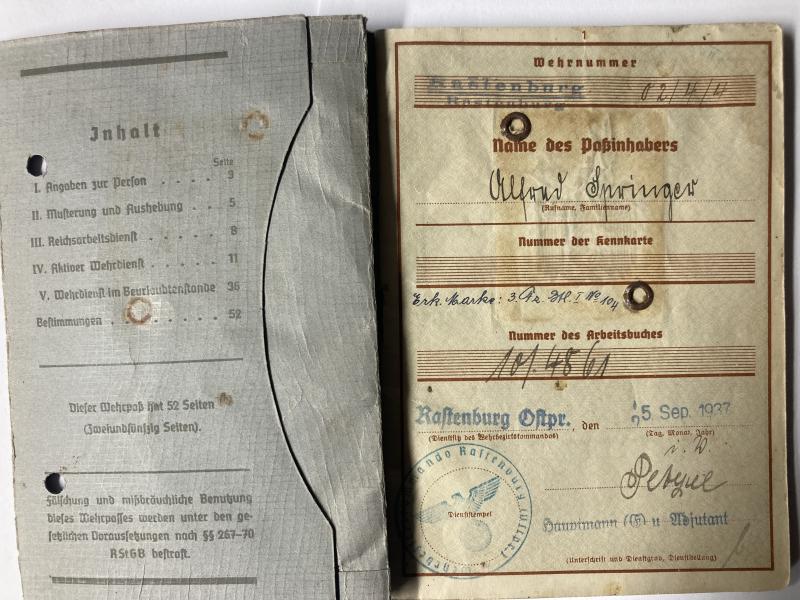 Inhalt
Seite
I. Angaben zur Person . . . . . 3
II. Musterung und Aushebung . . . 5
III. Reichsarbeitsdienst . . . . . 8
IV. Aktiver Wehrdienst . . . . . 11
V. Wehrdienst im Beurlaubtenstande 36
Bestimmungen . . . . . 52
Dieser Wehrpaß hat 52 Seiten
(Zweiundfünfzig Seiten).
Fälschung und mißbräuchliche Benutzung
dieses Wehrpasses werden unter den ge-
setzlichen Voraussetzungen nach §§ 267-70
RStGB bestraft.
1
Wehrnummer
Rastenburg
Rastenburg 02/4/4
Name des Paßinhabers
Alfred Springer
(Rufname, Familienname)
Nummer der Kennkarte
Erk. Marke: 3. I No 104
Nummer des Arbeitsbuches
101. 4861
Rastenburg Ostpr., den 25 Sep. 1937
(Dienstsitz des Wehrbezirkskommandos) (Tag, Monat, Jahr)
Rastenburg (Ostpr.)
Dienststempel
Hauptmann (E) u Adjutant
(Unterschrift und Dienstgrad, Dienststellung)